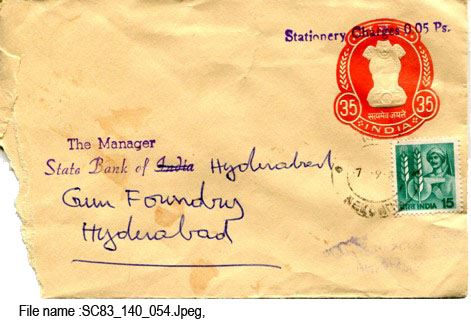 Stationery Charges 0.05 Ps.
35 35
सत्यमेव जयते
INDIA
The Manager
State Bank of India Hyderabad
Gun Foundry
Hyderabad
भारत INDIA 15
File name :SC83_140_054.Jpeg,